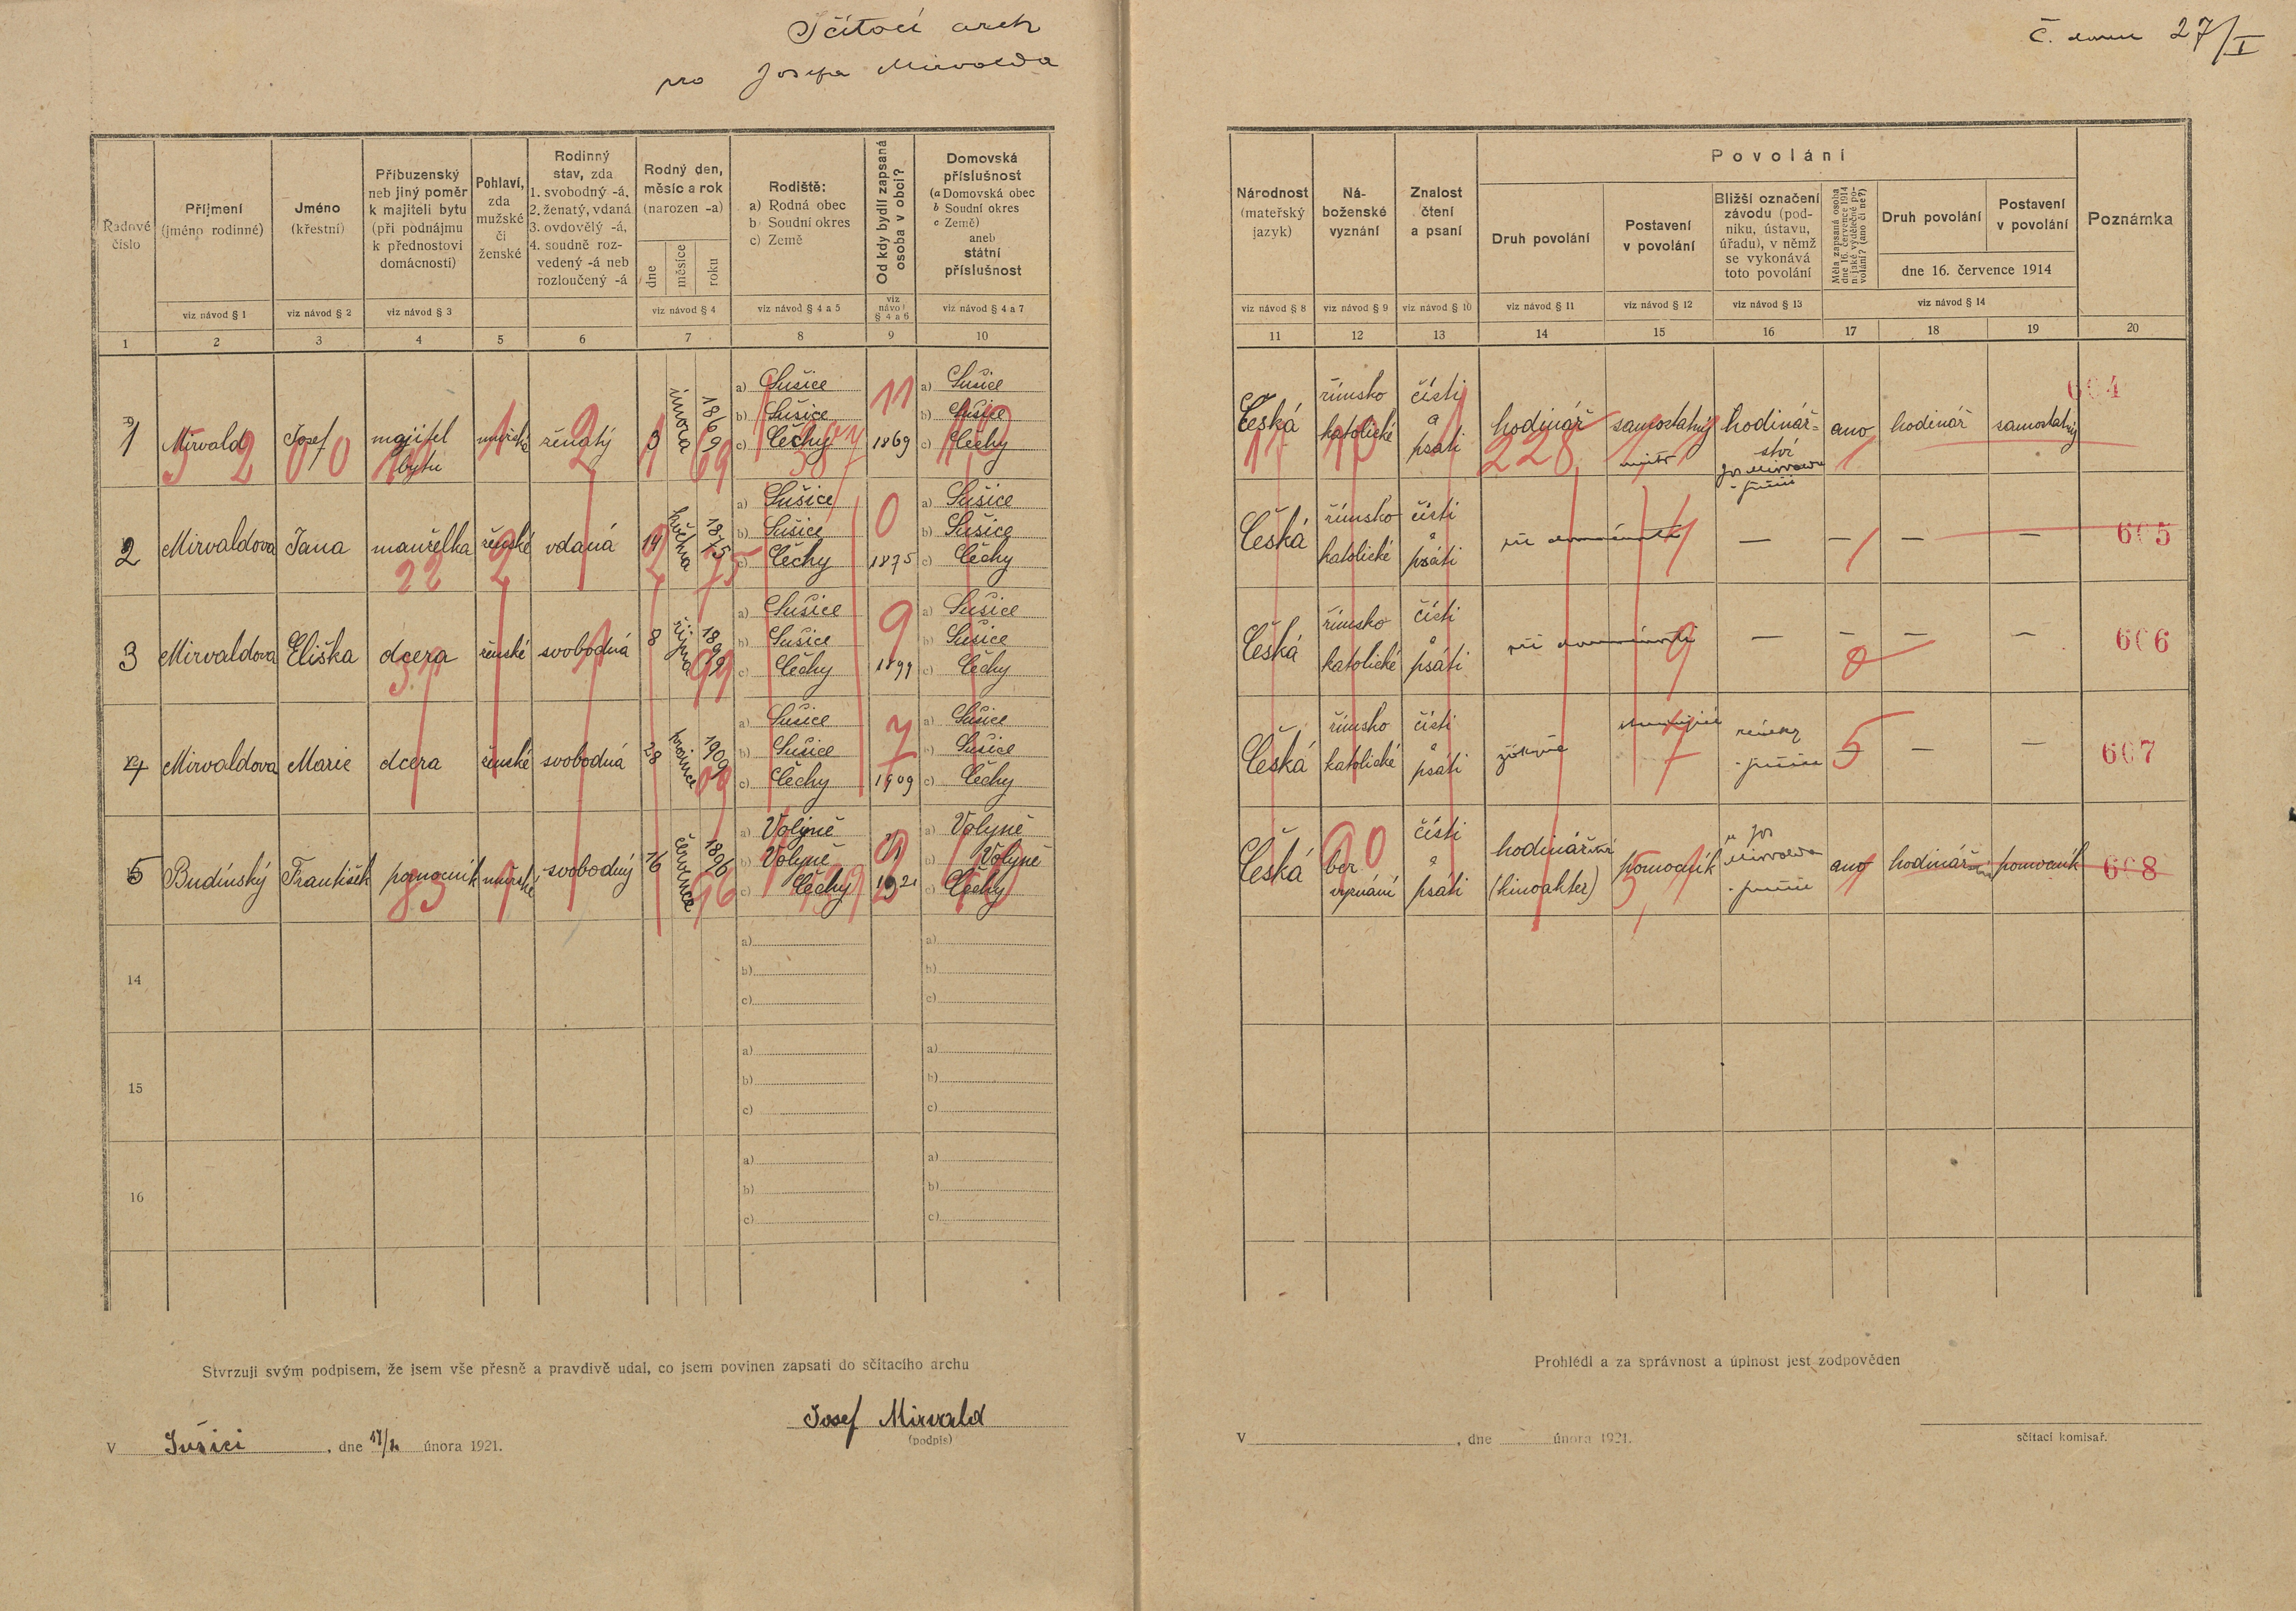 Sčítací arch
pro Josefa Mirvalda
Č. domu 27/I
Řadové číslo
Příjmení (jméno rodinné)
Jméno (křestní)
Příbuzenský neb jiný poměr k majiteli bytu (při podnájmu k přednostovi domácnosti)
Pohlaví, zda mužské či ženské
Rodinný stav, zda 1. svobodný -á, 2. ženatý, vdaná 3. ovdovělý -á, 4. soudně rozvedený -á neb rozloučený -á
Rodný den, měsíc a rok (narozen -a)
dne měsíce roku
Rodiště: a) Rodná obec b) Soudní okres c) Země
Od kdy bydlí zapsaná osoba v obci?
Domovská příslušnost (a Domovská obec b Soudní okres c Země) aneb státní příslušnost
viz návod § 1
viz návod § 2
viz návod § 3
viz návod § 4
viz návod § 4 a 5
viz návod § 4 a 6
viz návod § 4 a 7
1 2 3 4 5 6 7 8 9 10
Národnost (mateřský jazyk)
Náboženské vyznání
Znalost čtení a psaní
Povolání
Druh povolání
Postavení v povolání
Bližší označení závodu (podniku, ústavu, úřadu), v němž se vykonává toto povolání
Měla zapsaná osoba dne 16. července 1914 nějaké výdělečné povolání? (ano či ne?)
Druh povolání
Postavení v povolání
dne 16. července 1914
Poznámka
viz návod § 8
viz návod § 9
viz návod § 10
viz návod § 11
viz návod § 12
viz návod § 13
viz návod § 14
11 12 13 14 15 16 17 18 19 20
1 Mirvald Josef majitel bytu mužské ženatý 3 února 1869 a) Sušice b) Sušice c) Čechy 1869 a) Sušice b) Sušice c) Čechy
Česká římsko katolické čísti a psáti hodinář samostatný mistr hodinářství Jos Mirvalda ano hodinář samostatný 604
2 Mirvaldova Jana manželka ženské vdaná 14 května 1875 a) Sušice b) Sušice c) Čechy 1875 a) Sušice b) Sušice c) Čechy
Česká římsko katolické čísti a psáti — — — — 605
3 Mirvaldova Eliška dcera ženské svobodná 8 října 1899 a) Sušice b) Sušice c) Čechy 1899 a) Sušice b) Sušice c) Čechy
Česká římsko katolické čísti a psáti — — — — 606
4 Mirvaldova Marie dcera ženské svobodná 28 prosince 1909 a) Sušice b) Sušice c) Čechy 1909 a) Sušice b) Sušice c) Čechy
Česká římsko katolické čísti a psáti žákyně — — — 607
5 Budínský František pomocník mužské svobodný 16 července 1896 a) Volyně b) Volyně c) Čechy 1921 a) Volyně b) Volyně c) Čechy
Česká bez vyznání čísti a psáti hodinářství (kinoakter) pomocník u Jos Mirvalda ano hodinářství pomocník 608
14 a) b) c) a) b) c)
15 a) b) c) a) b) c)
16 a) b) c) a) b) c)
Stvrzuji svým podpisem, že jsem vše přesně a pravdivě udal, co jsem povinen zapsati do sčítacího archu
Josef Mirvald
(podpis)
V Sušici, dne února 1921.
Prohlédl a za správnost a úplnost jest zodpověden
V , dne února 1921.
sčítací komisař.